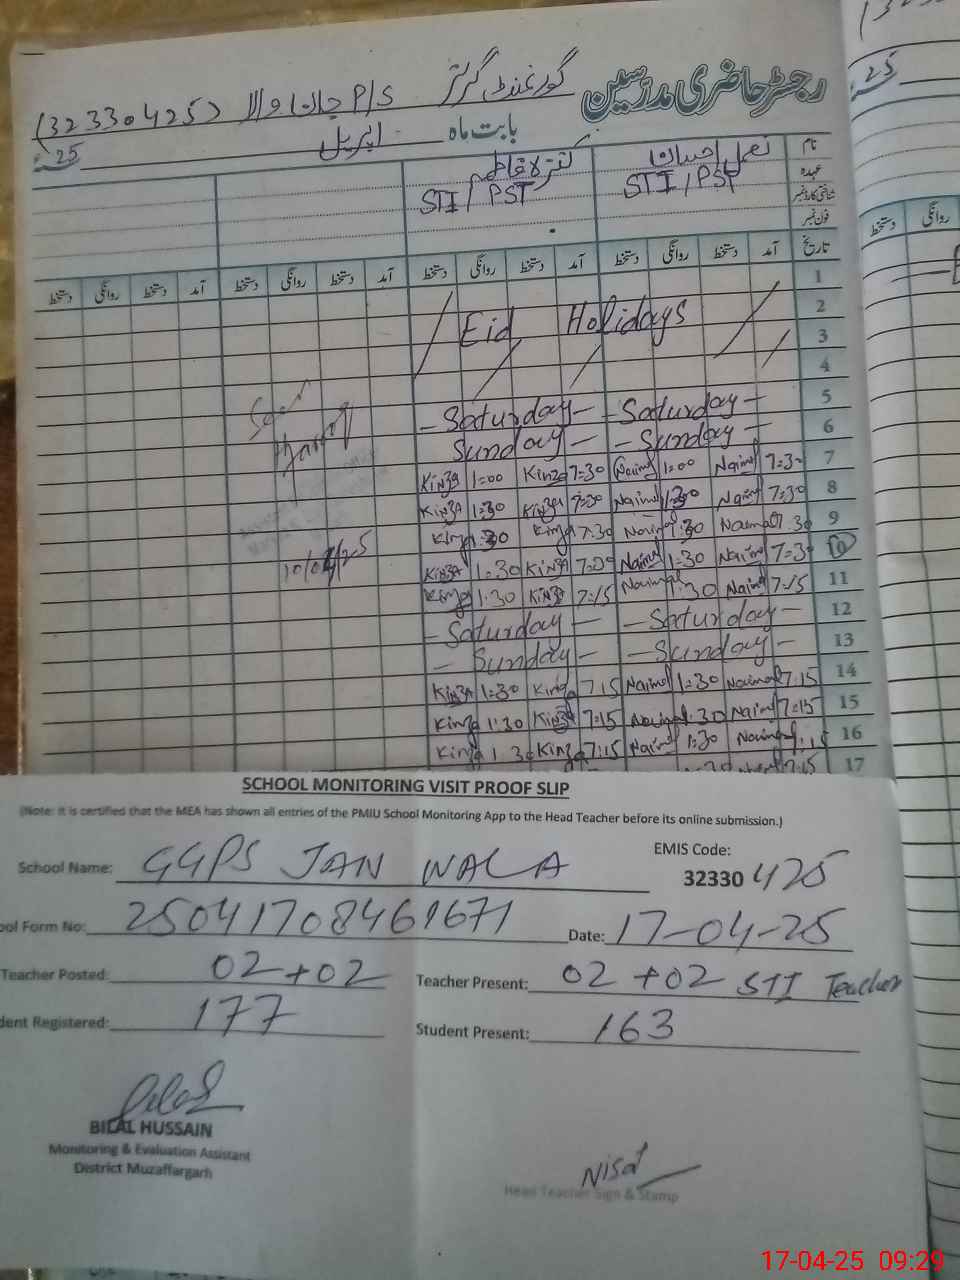 رجسٹر حاضری مدرسین
گورنمنٹ گرلز P/S جان والا (32330425)
بابت ماہ اپریل 25ء
نام
عہدہ
شناختی کارڈ نمبر
فون نمبر
STI / PST STI / PST
تاریخ آمد دستخط روانگی دستخط آمد دستخط روانگی دستخط آمد دستخط روانگی دستخط آمد دستخط روانگی دستخط
روانگی دستخط
25ء
1
2 Eid Holidays
3
4
5 - Saturday - - Saturday -
6 Sunday - - Sunday -
7 Kinza 1=00 Kinza 7=30 Naimal 1=00 Naimal 7=30
8 Kinza 1=30 Kinza 7=30 Naimal 1=30 Naimal 7=30
9 Kinza 1=30 Kinza 7:30 Naimal 1:30 Naimal 7:30
10 Kinza 1=30 Kinza Naimal 1=30 Naimal 7=30
11 Kinza 1:30 Kinza 7:15 Naimal 1:30 Naimal 7=15
12 - Saturday - - Saturday -
13 - Sunday - - Sunday -
14 Kinza 1=30 Kinza 7:15 Naimal 1:30 Naimal 7:15
15 Kinza 1:30 Kinza 7=15 Naimal 1:30 Naimal 7=15
16 Kinza 1:30 Kinza 7:15 Naimal 1:30 Naimal 7:15
17 7:15
10/04/25
SCHOOL MONITORING VISIT PROOF SLIP
(Note: It is certified that the MEA has shown all entries of the PMIU School Monitoring App to the Head Teacher before its online submission.)
School Name: GGPS JAN WALA EMIS Code: 32330425
ool Form No: 25041708461671 Date: 17-04-25
Teacher Posted: 02+02 Teacher Present: 02 +02 STI Teacher
dent Registered: 177 Student Present: 163
BILAL HUSSAIN
Monitoring & Evaluation Assistant
District Muzaffargarh
Head Teacher Sign & Stamp
17-04-25 09:29